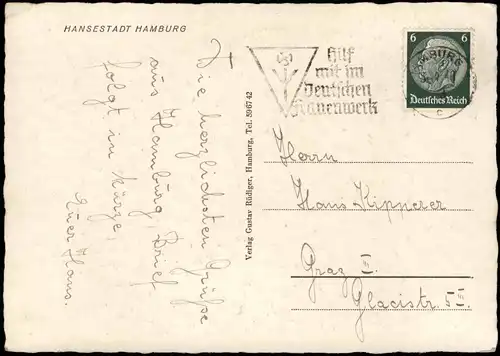 HANSESTADT HAMBURG
Die herzlichsten Grüße
aus Hamburg, Brief
folgt in Kürze,
Euer Hans.
Verlag Gustav Rüdiger, Hamburg, Tel. 596742
Hilf
mit im
Deutschen
Frauenwerk
6 6
Deutsches Reich
MBURG
c
Herrn
Hans Kipperer
Graz II.
Glacistr. 5 II.